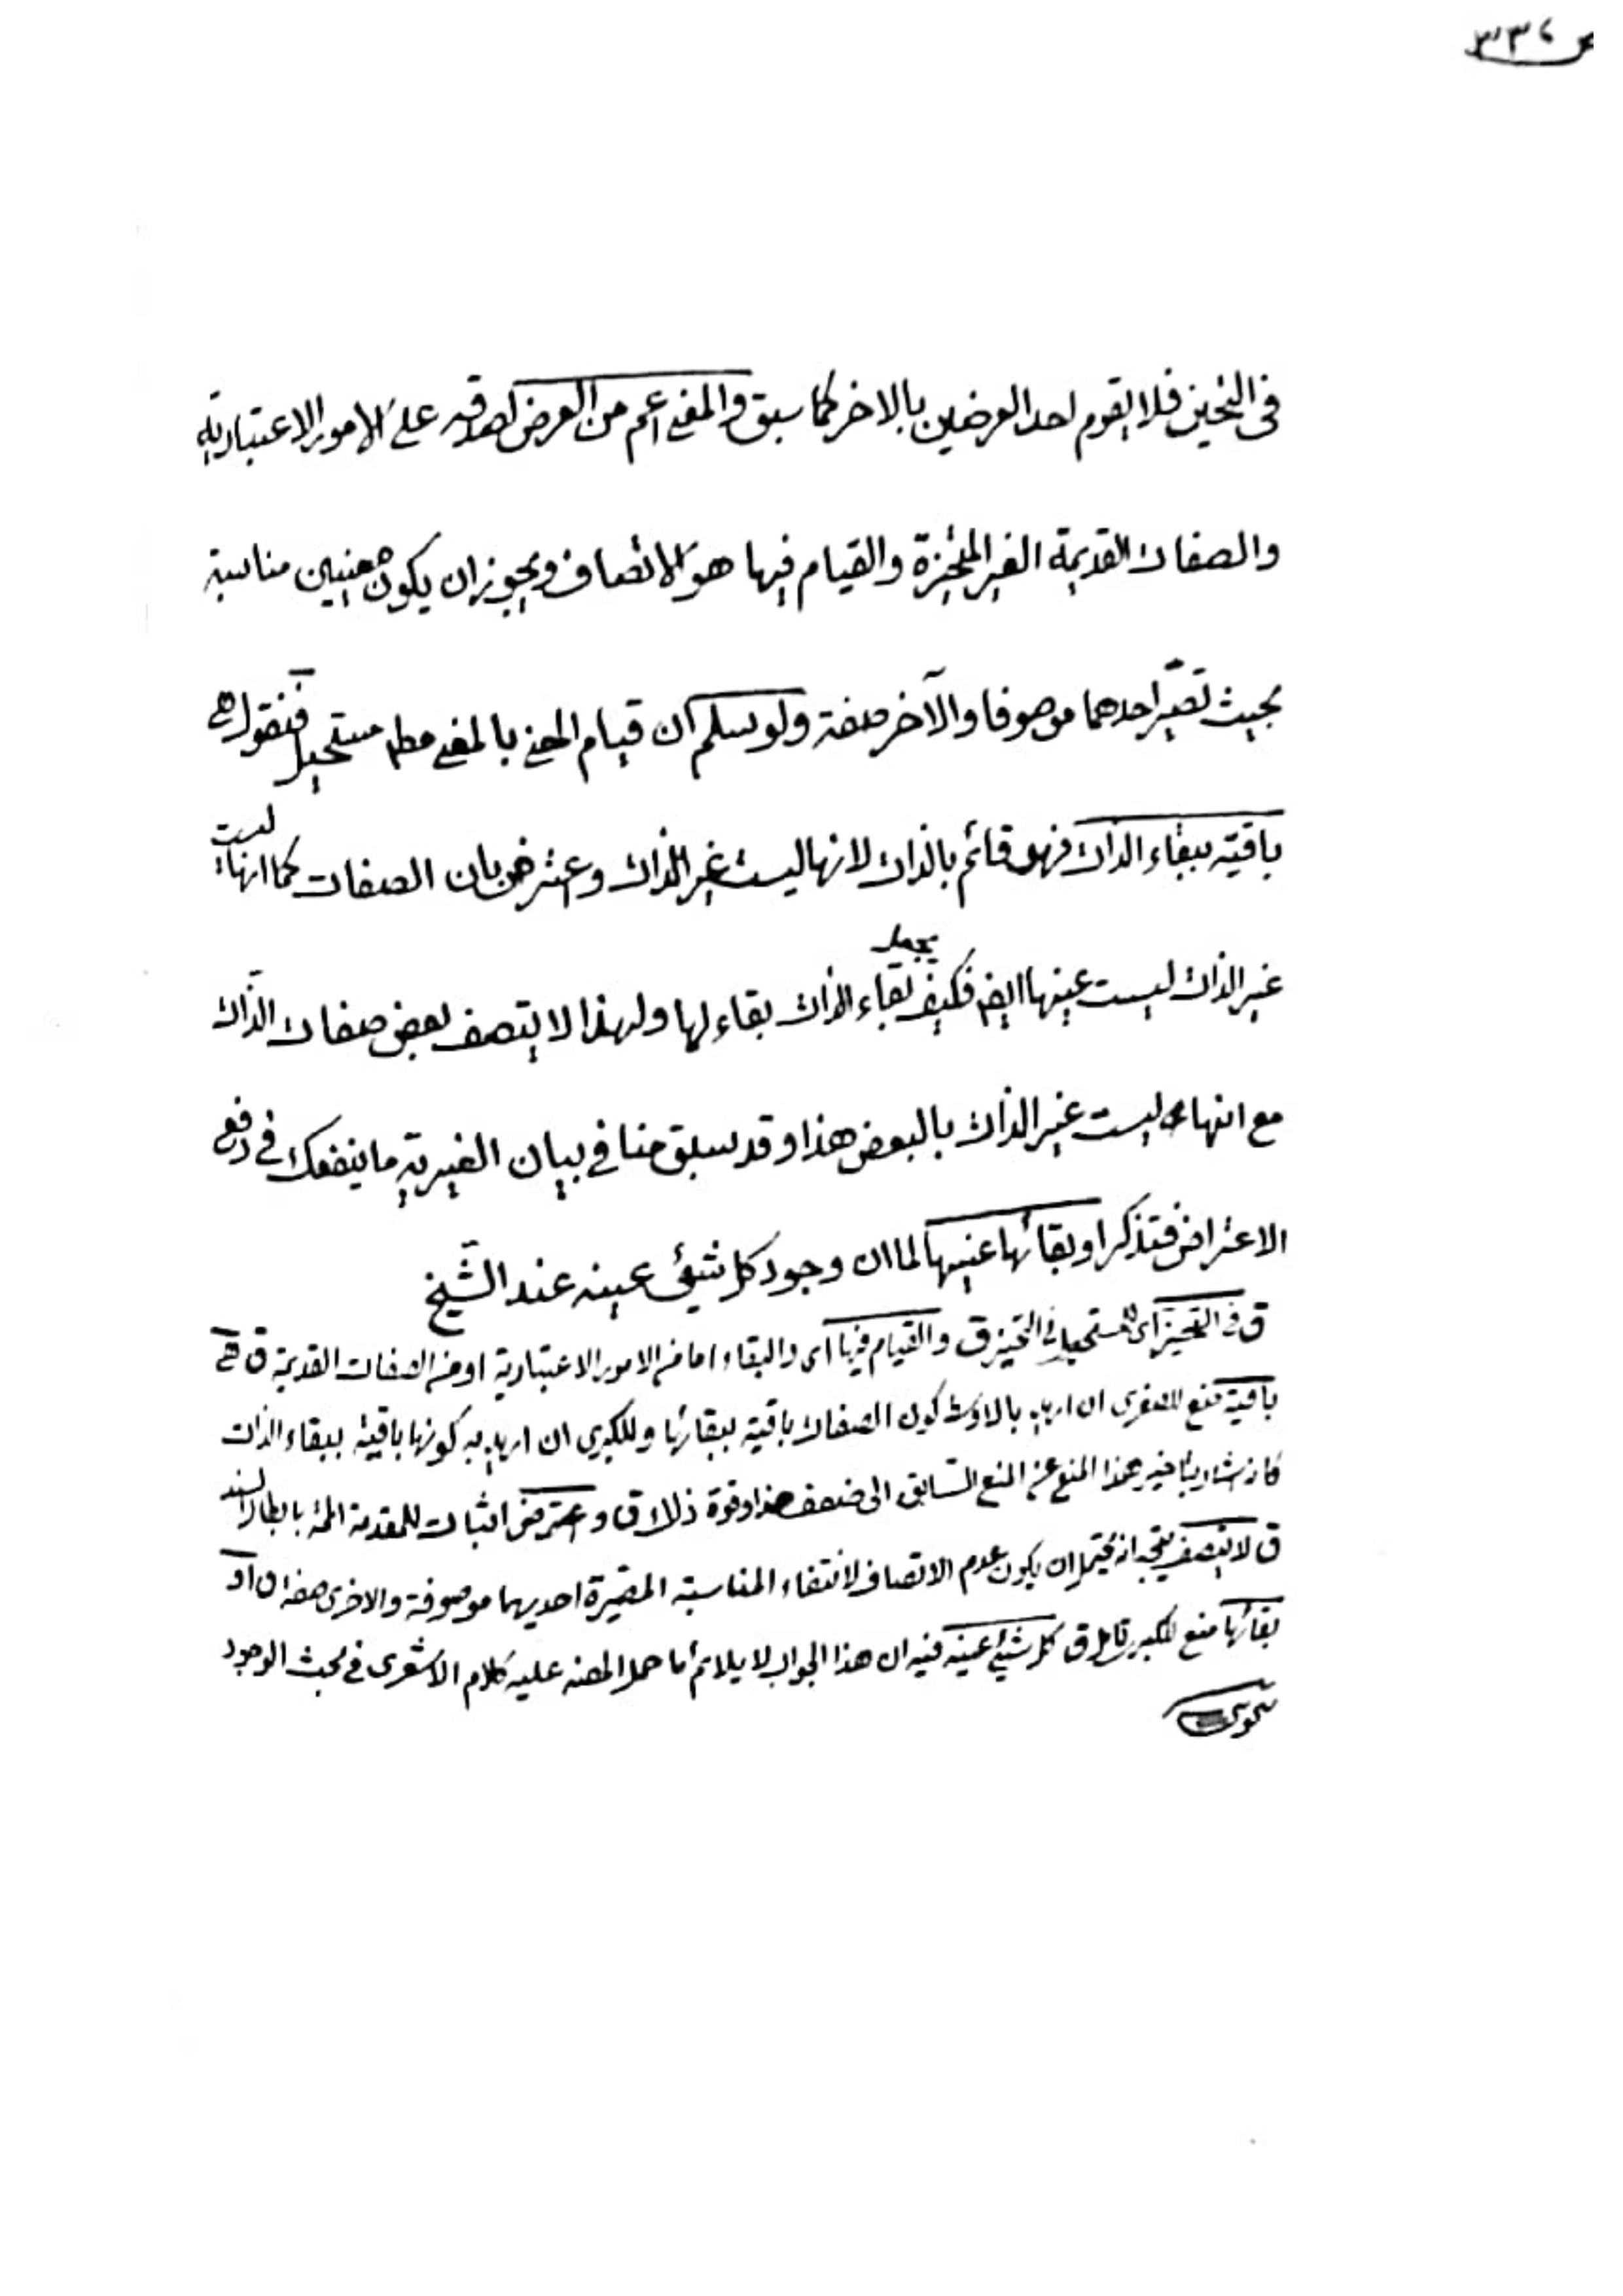 ص ٣٣٤
فى التحيز فلا يقوم احد العرضين بالاخر كما سبق والمعنى اعم من العرض لصدقه على الامور الاعتبارية
والصفات القديمة الغير المتحيزة والقيام فيها هو الاتصاف ويجوز ان يكون معنيين مناسبة
بحيث تصيّر احدهما موصوفا والآخر صفة ولو سلم ان قيام المعنى بالمعنى مطلقا مستحيل فنقول هى
باقية ببقاء الذات فهو قائم بالذات لانها ليست غير الذات واعترض بان الصفات كما انها ليست
غير الذات ليست عينها ايضا فكيف يجعل بقاء الذات بقاء لها ولهذا لا يتصف بعض صفات الذات
مع انها ليست غير الذات بالبعض هذا وقد سبق منا في بيان الغيرية ما ينفعك فى دفع
الاعتراض فتذكر او بقائها عينها لما ان وجود كل شيئ عينه عند الشيخ
ق فى التحيز اى المستحيل فى التحيز ق والقيام فيها اى والبقاء اما من الامور الاعتبارية او من الصفات القديمة ق هى
باقية منع للصغرى ان اريد بالاوسط كون الصفات باقية ببقائها وللكبرى ان اريد به كونها باقية ببقاء الذات
كانه اشار بتأخير هذا المنع عن المنع السابق الى ضعف هذا وقوة ذلك ق واعترض اثبات للمقدمة الممنوعة بابطال السند
ق لا يتصف يتجه انه يحتمل ان يكون عدم الاتصاف لانتفاء المناسبة المصيّرة احديهما موصوفة والاخرى صفة ق او
بقائها منع للكبرى ق كل شيئ عينه فيه ان هذا الجواب لا يلائم ما حمل المصنف عليه كلام الاشعرى فى بحث الوجود